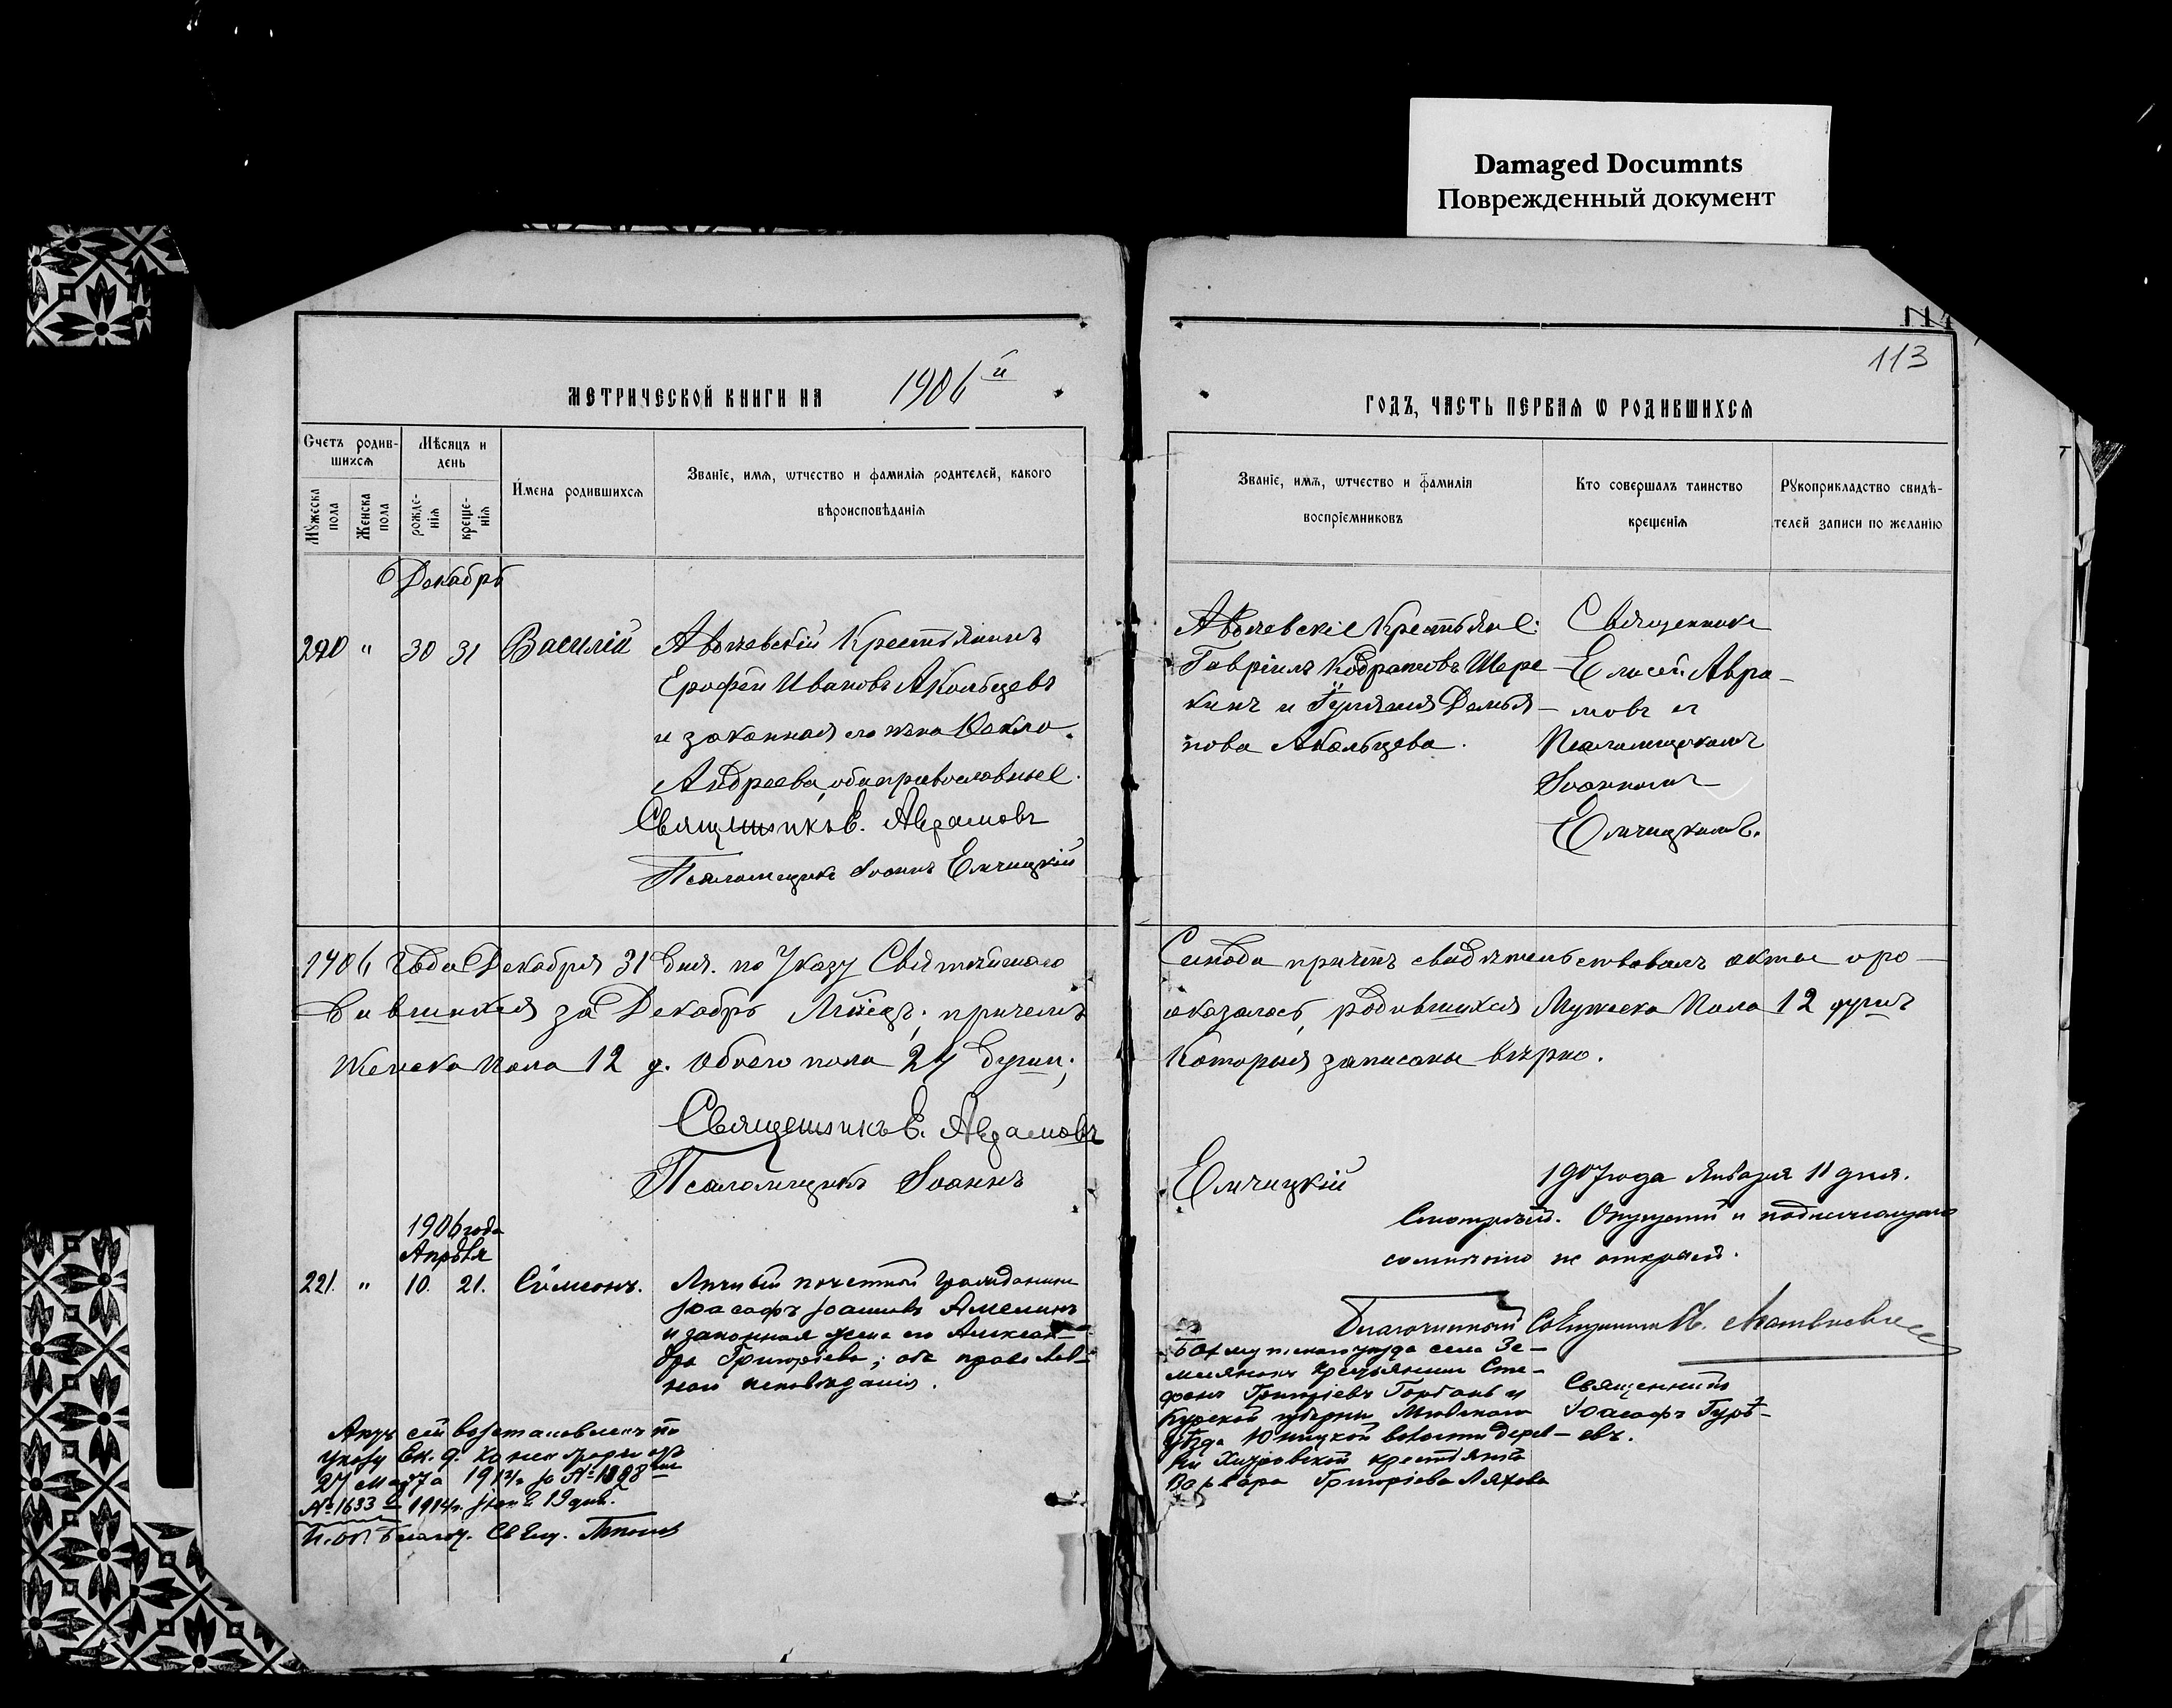 Damaged Documnts
Поврежденный документ
114
113
МЕТРИЧЕСКОЙ КНИГИ НА 1906й
ГОДЪ, ЧАСТЬ ПЕРВАЯ Ѡ РОДИВШИХСЯ
Счетъ родив-
шихся
Мѣсяцъ и
день
Мꙋжеска
пола
Женска
пола
рожде-
нїя
креще-
нїя
Имена родившихся
Званїе, имя, ѡтчество и фамилїя родителей, какого
вѣроисповѣданїя
Званїе, имя, ѡтчество и фамилїя
воспрїемниковъ
Кто совершалъ таинство
крещенїя
Рꙋкоприкладство свидѣ-
телей записи по желанїю
Декабрь
290 " 30 31 Василій
Крестьянинъ
Ерофей Ивановъ Акольцевъ
и законная его жена
Андреева, оба православные.
Священникъ Е. Аврамовъ
Псаломщикъ Іоаннъ Елчицкій
Крестьяне:
Гавріилъ Кодратовъ Шере
кинъ и Демья-
нова Акольцева.
Священникъ
Елисей Авра-
мовъ и
Псаломщикомъ
Іоанномъ
Елчицкимъ.
1906 года Декабря 31 дня. по Указу Святѣйшаго
Синода причтъ свидѣтельствовалъ акты о ро-
дившихся за Декабрь Мѣсяцъ; причемъ
оказалось, родившихся Мужеска Пола 12 душъ
Женска Пола 12 д. Обоего пола 24 души;
Которыя записаны вѣрно.
Священникъ Е. Аврамовъ
Псаломщикъ Іоаннъ
Елчицкій
1907 года Января 11 дня.
Смотрѣлъ. и подлежащаго
сомнѣнію не открылъ.
Благочинный Священникъ
1906 года
Апрѣля
221. " 10. 21. Сѵмеонъ.
Личный почетный гражданинъ
Іоасафъ Іоанновъ Амелинъ
и законная жена его Алексан-
дра Григоріева; оба православ-
наго исповѣданія.
Бахмутскаго уѣзда села Зе-
млянокъ крестьянинъ Сте-
фанъ Григоріевъ Горбань и
Курской губерніи Льговскаго
уѣзда волости дерев-
ни крестьянка
Варвара Григоріева Ляхова
Священникъ
Іоасафъ Гурѣ-
евъ.
Актъ сей возстановленъ по
указу Ек. Д. Консисторіи отъ
27 марта 1914 г. за №
№ 1633 1914 г. 19 дня.
И. об. Благоч. Свящ.